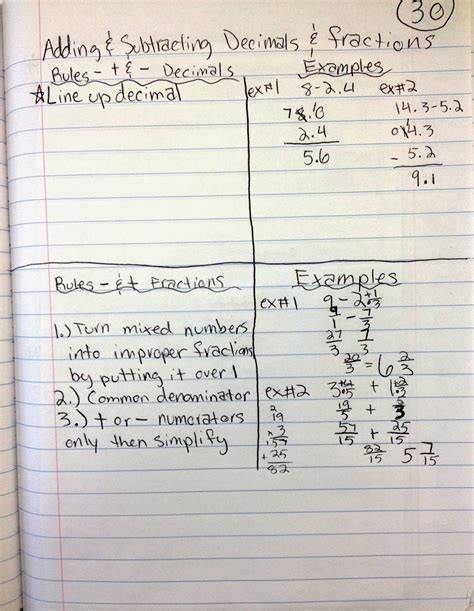 30
Adding & Subtracting Decimals & fractions
Rules - + & - Decimals
☆Line up decimal
Examples
ex#1 8-2.4
7 8.10
2.4
5.6
ex#2
14.3-5.2
0 14.3
- 5.2
9.1
Rules - & + Fractions
1.) Turn mixed numbers
into improper fractions
by putting it over 1
2.) Common denominator
3.) + or - numerators
only then simplify
Examples
ex#1 9 - 2 1/3
9/1 - 7/3
27/3 7/3
20/3 = 6 2/3
ex#2 3 4/5 + 1 2/3
19/5 + 5/3
57/15 + 25/15
82/15 5 7/15
2
19
x 3
57
+ 25
82